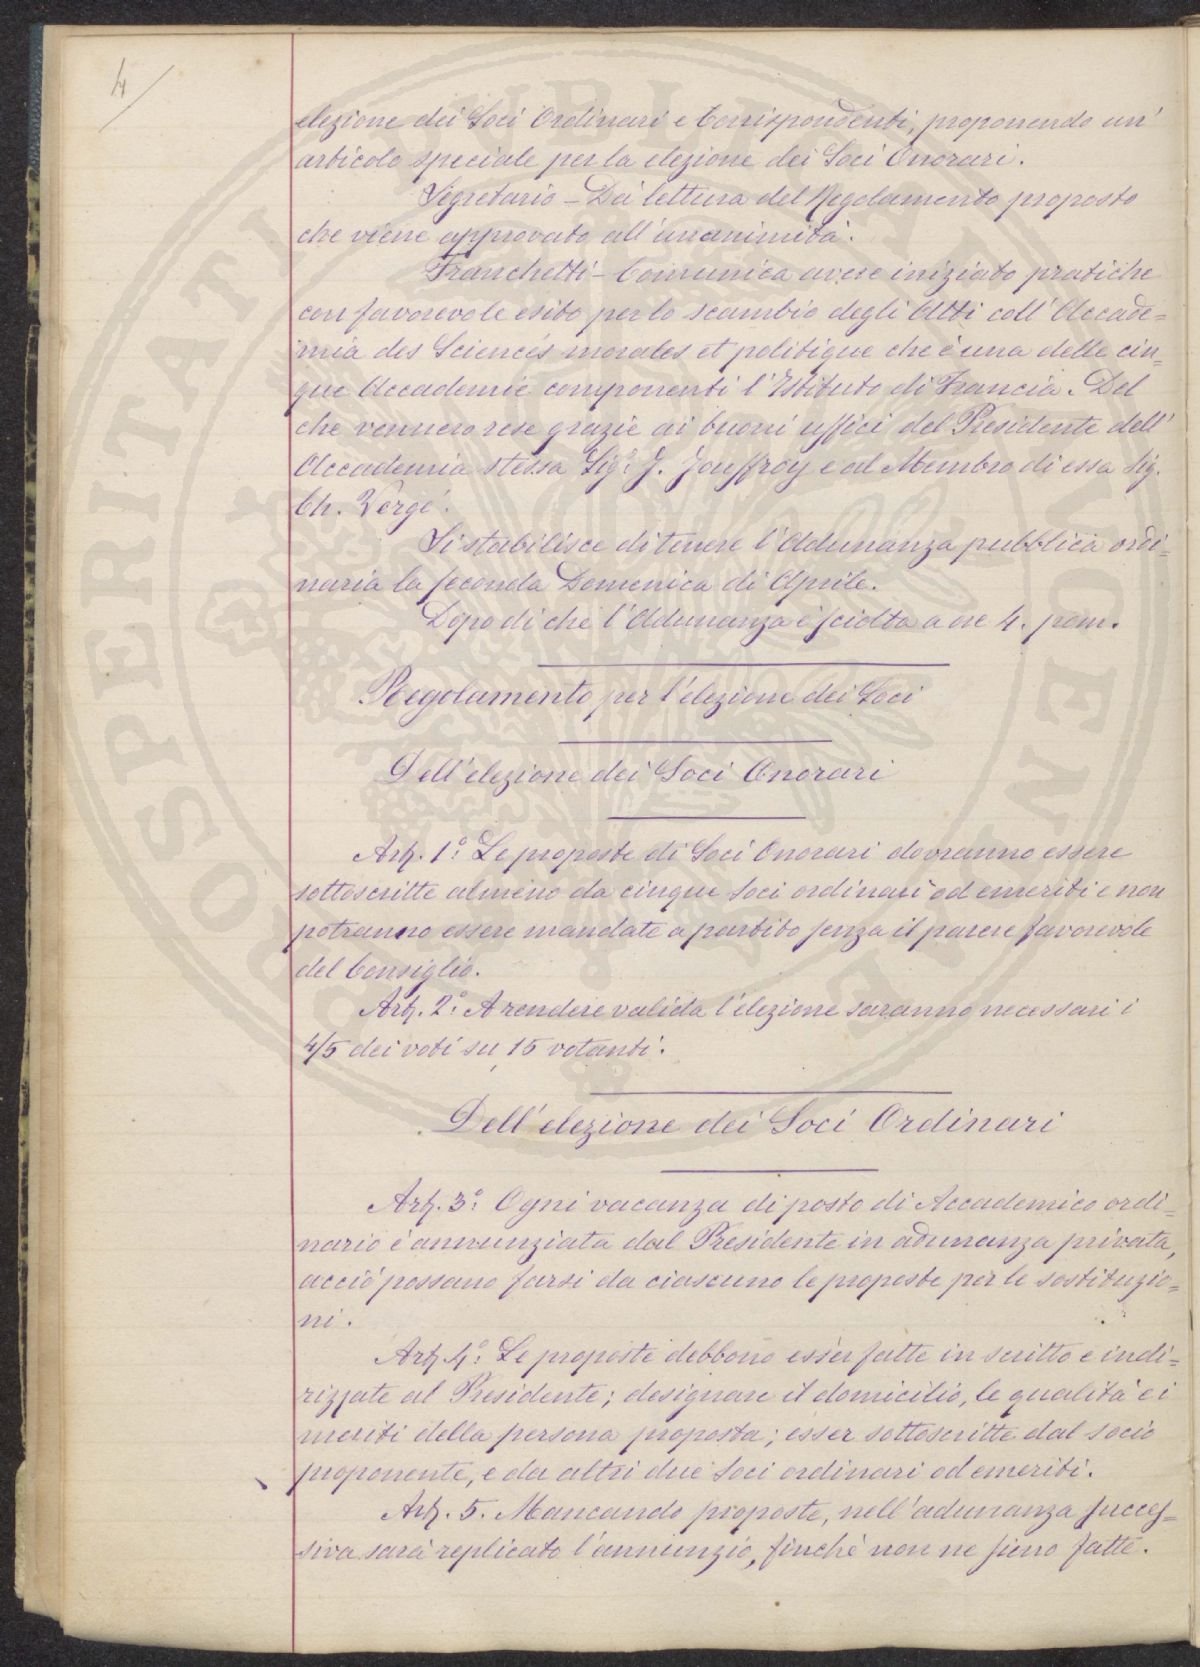 4
elezione dei Soci Ordinari e Corrispondenti, proponendo un'
articolo speciale per la elezione dei Soci Onorari.
Segretario - Dà lettura del Regolamento proposto
che viene approvato all'unanimità.
Franchetti - Comunica avere iniziato pratiche
con favorevole esito per lo scambio degli Atti coll'Accade=
mia des Sciences morales et politique che è una delle cin=
que Accademie componenti l'Istituto di Francia. Del
che vennero rese grazie ai buoni uffici del Presidente dell'
Accademia stessa Sigr. J. Jouffroy e al Membro di essa Sig.
Ch. Vergé.
Si stabilisce di tenere l'Adunanza pubblica ordi=
naria la seconda Domenica di Aprile.
Dopo di che l'Adunanza è sciolta a ore 4. pom.
Regolamento per l'elezione dei Soci
Dell'elezione dei Soci Onorari
Art. 1º: Le proposte di Soci Onorari dovranno essere
sottoscritte almeno da cinque Soci ordinari od emeriti e non
potranno essere mandate a partito senza il parere favorevole
del Consiglio.
Art. 2º: A rendere valida l'elezione saranno necessari i
4/5 dei voti su 15 votanti.
Dell'elezione dei Soci Ordinari
Art. 3º: Ogni vacanza di posto di Accademico ordi=
nario è annunziata dal Presidente in adunanza privata,
acciò possano farsi da ciascuno le proposte per le sostituzio=
ni.
Art. 4º: Le proposte debbono esser fatte in scritto e indi=
rizzate al Presidente; designare il domicilio, le qualità e i
meriti della persona proposta; esser sottoscritte dal socio
proponente, e da altri due Soci ordinari od emeriti.
Art. 5. Mancando proposte, nell'adunanza succes=
siva sarà replicato l'annunzio, finchè non ne sieno fatte.
PROSPERITATI PUBLICAE AUGENDAE